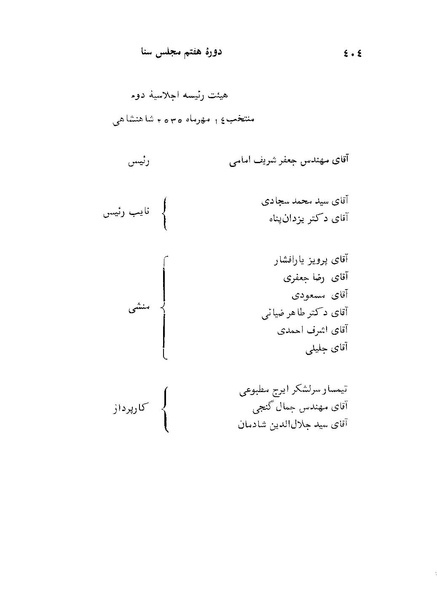 دورهٔ هفتم مجلس سنا ٤٠٤
هیئت رئیسه اجلاسیهٔ دوم
منتخب ١٤ مهرماه ٢٥٣٥ شاهنشاهی
آقای مهندس جعفر شریف امامی رئیس
آقای سید محمد سجادی
آقای دکتر یزدان‌پناه
نایب رئیس
آقای پرویز یارافشار
آقای رضا جعفری
آقای مسعودی
آقای دکتر طاهر ضیائی
آقای اشرف احمدی
آقای جلیلی
منشی
تیمسار سرلشکر ایرج مطبوعی
آقای مهندس جمال گنجی
آقای سید جلال‌الدین شادمان
کارپرداز